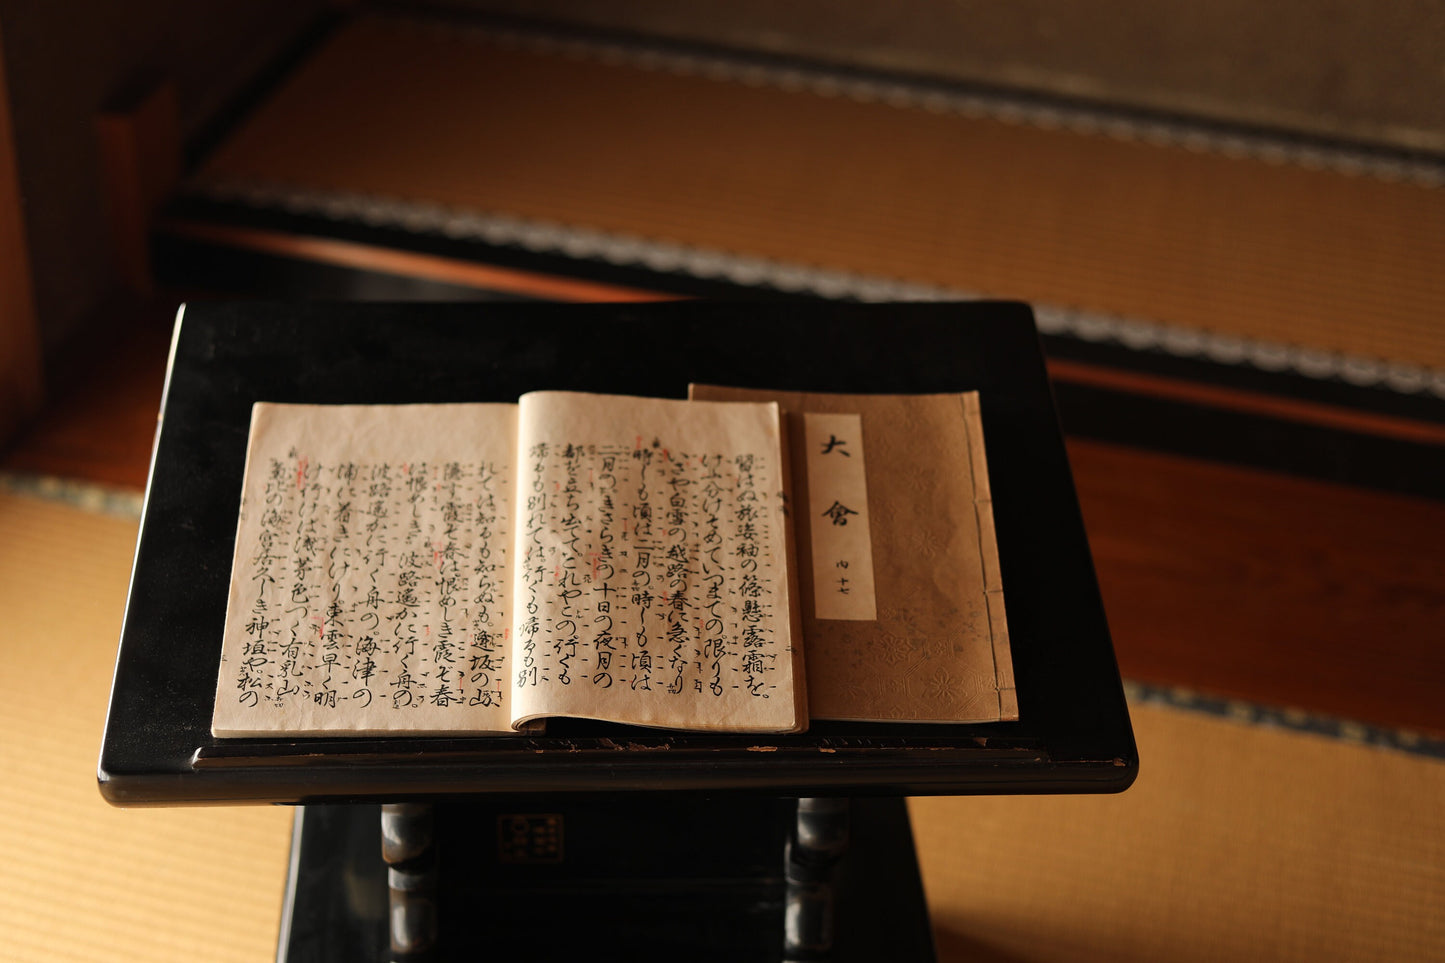 習はぬ旅姿袖の篠懸露霜を。
けふ分けそめていつまでの。限りも
いさや白雪の。越路の春に急ぐなり
時しも頃は二月の。時しも頃は
二月の。きさらぎの十日の夜月の
都を立ち出でて。これやこの行くも
帰るも別れては。行くも帰るも別
れては。知るも知らぬも。逢坂の山
隠す霞ぞ春は恨めしき霞ぞ春
は恨めしき。波路遥かに行く舟の。
波路遥かに行く舟の。海津の
浦に着きにけり。東雲早く明
け行けば浅茅色づく有乳山
氣比の海。宮居久しき神垣や。松の
大會
内十七